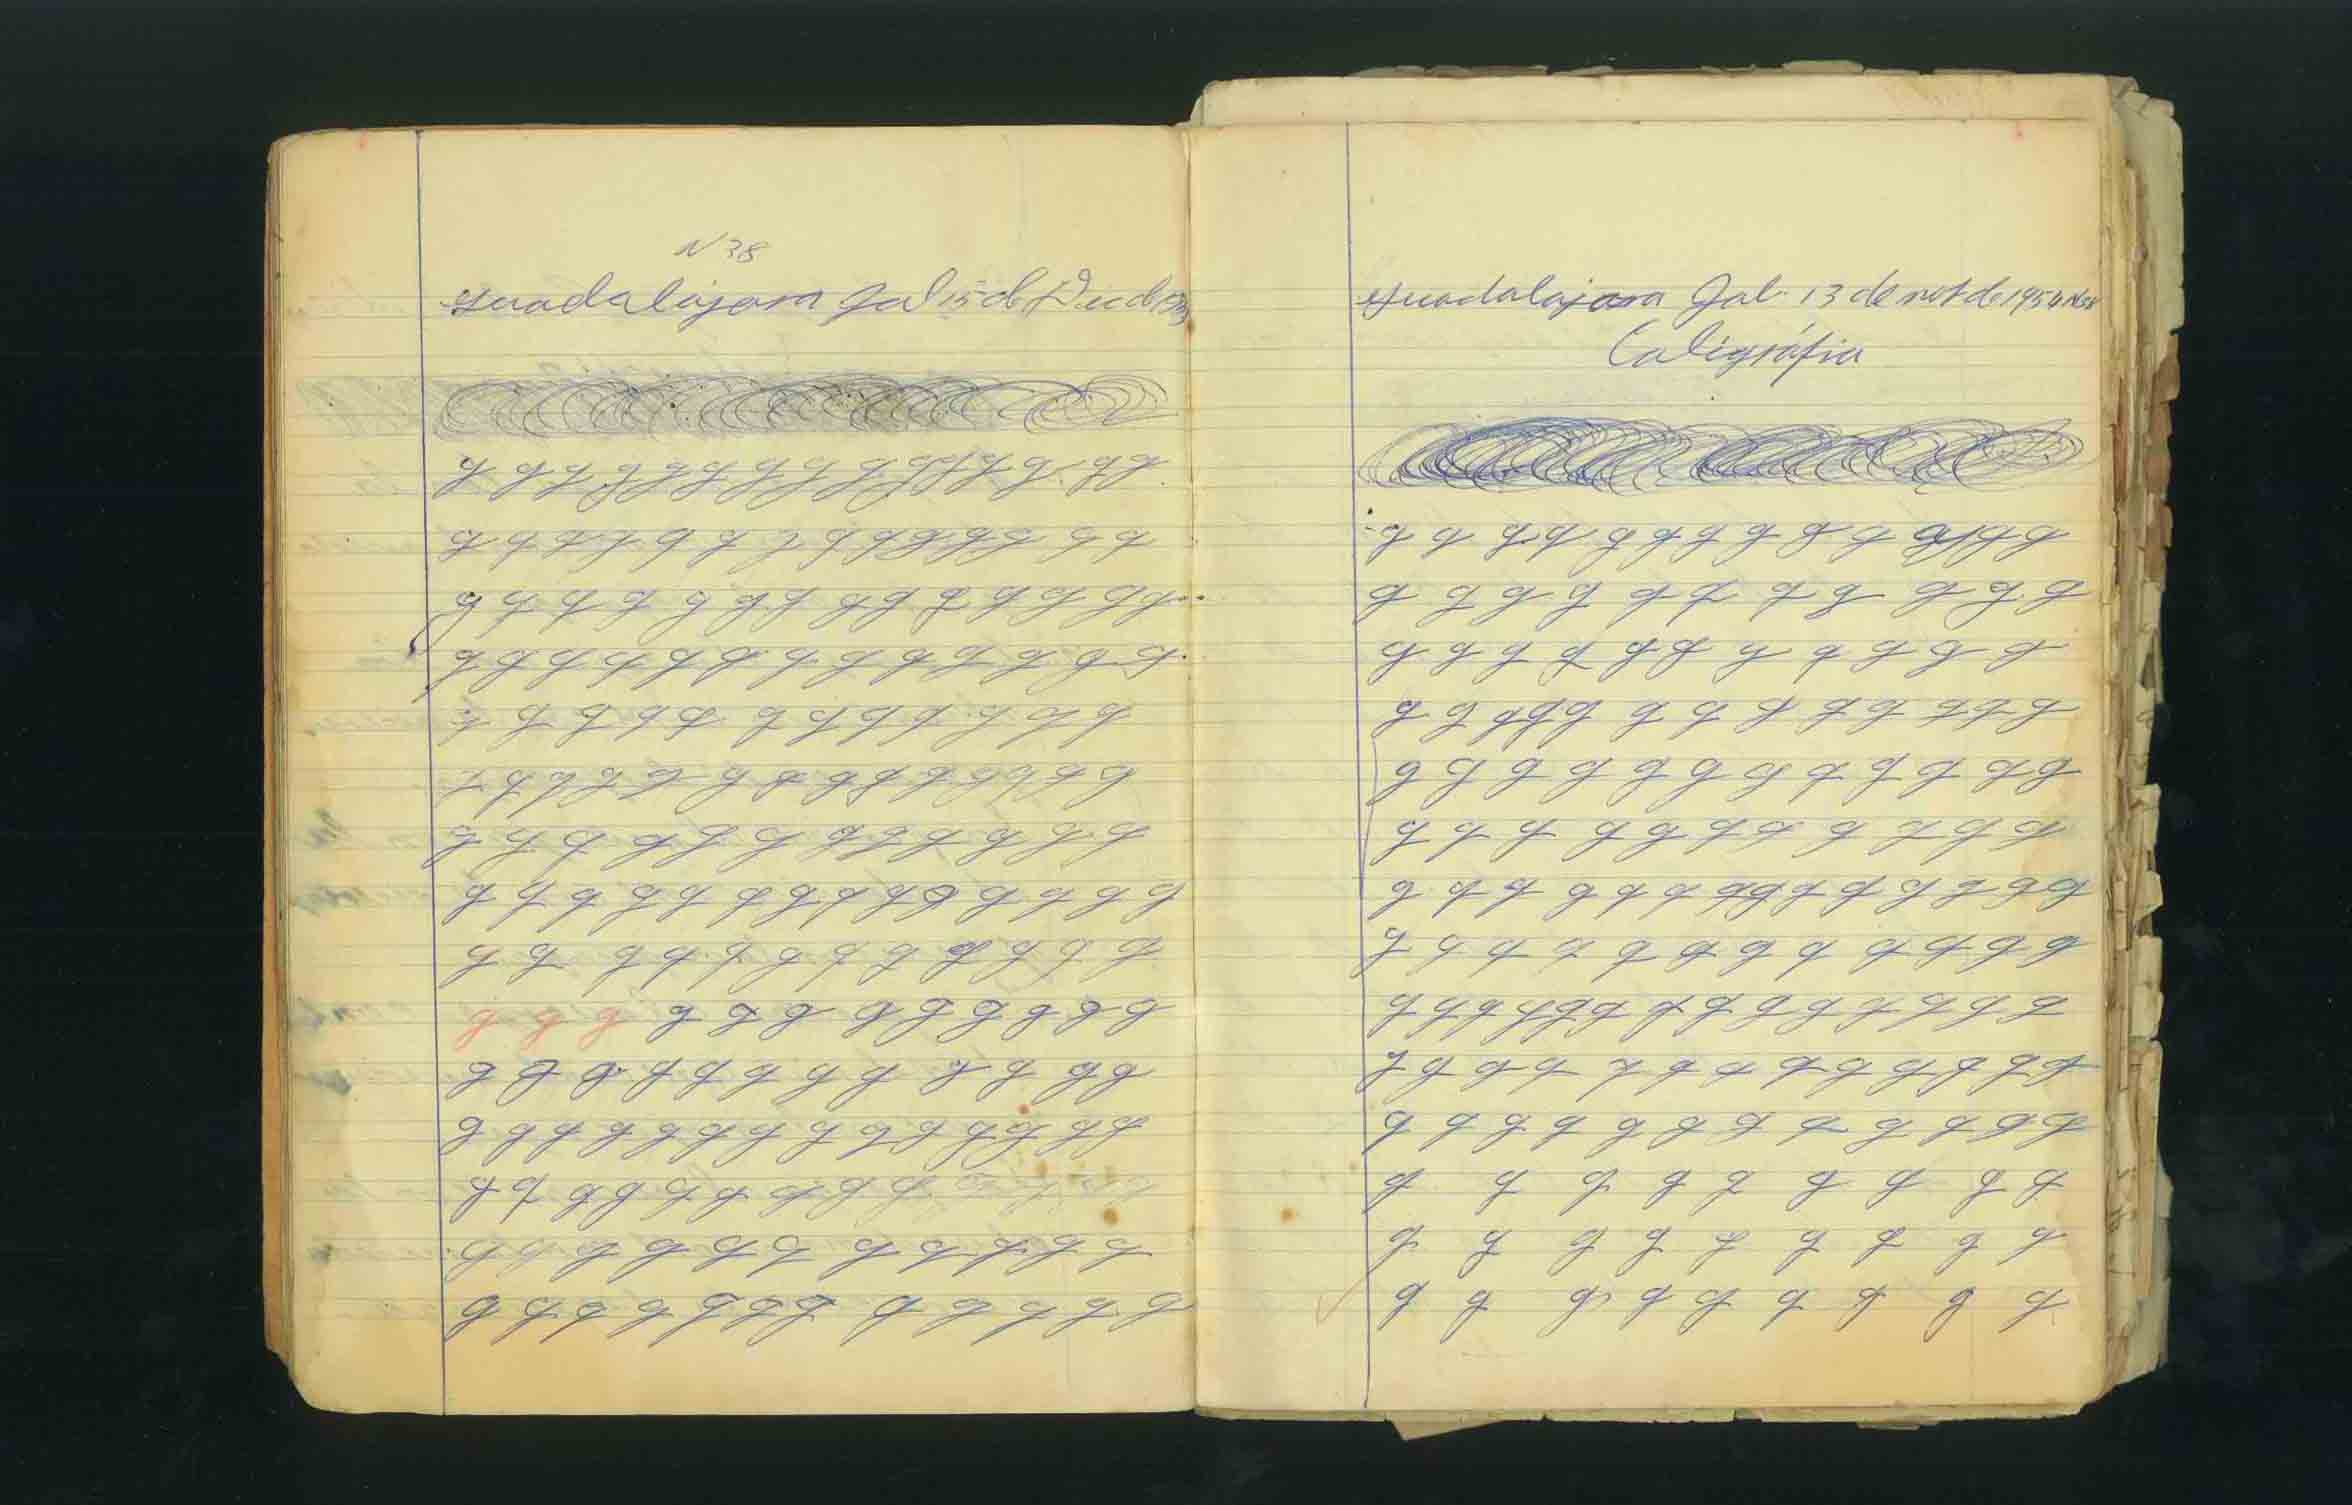 N 38
Guadalajara Jal 15 d Dic d
g g g g g g g g g g g g g g g
g g g g g g g g g g g g g g
g g g g g g g g g g g g g g
g g g g g g g g g g g g g
g g g g g g g g g g g g
g g g g g g g g g g g g g g
g g g g g g g g g g g g
g g g g g g g g g g g g g g
g g g g g g g g g g g g
g g g g g g g g g g g g
g g g g g g g g g g g g
g g g g g g g g g g g g g g
g g g g g g g g g
g g g g g g g g g g g
g g g g g g g g g g g g
Guadalajara Jal. 13 de nov de 1954 N 38
Caligráfia
g g g g g g g g g g g g g
g g g g g g g g g g g
g g g g g g g g g g g
g g g g g g g g g g g g g
g g g g g g g g g g g g
g g g g g g g g g g g
g g g g g g g g g g g g g g
g g g g g g g g g g g g
g g g g g g g g g g g g g g
g g g g g g g g g g g g g
g g g g g g g g g g g g
g g g g g g g g g
g g g g g g g g g
g g g g g g g g g